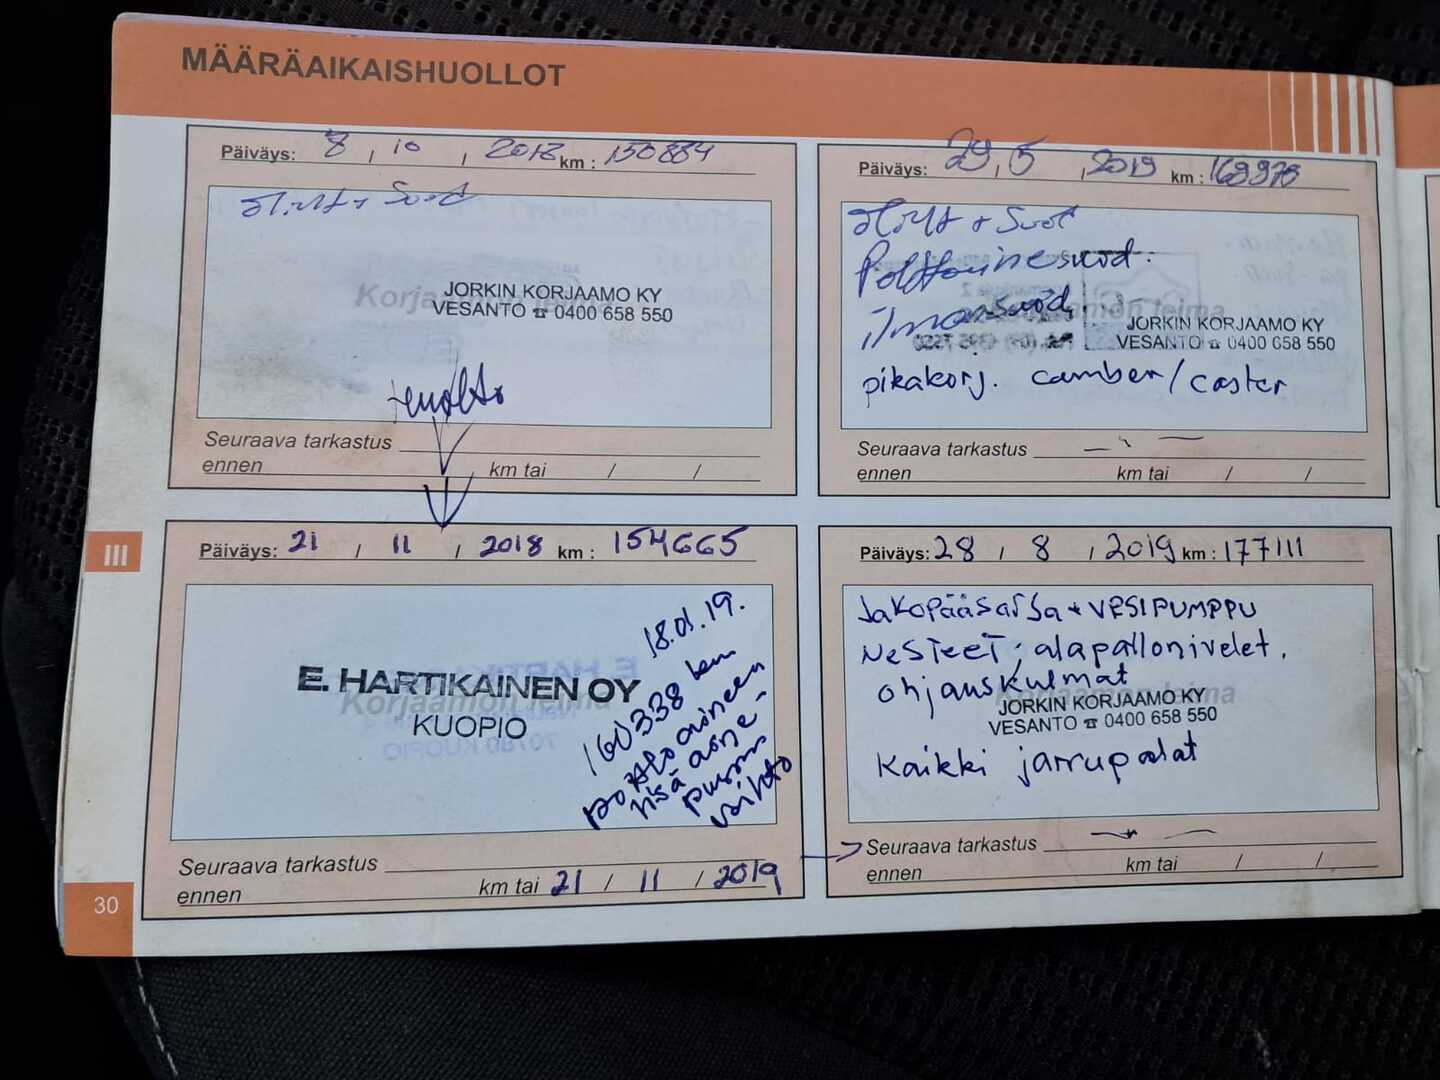 MÄÄRÄAIKAISHUOLLOT
Päiväys: 8 / 10 / 2018 km : 150884
öljyt + Suod
Korjaamon leima
JORKIN KORJAAMO KY
VESANTO ☎ 0400 658 550
Seuraava tarkastus
ennen km tai / /
Päiväys: 29 , 5 , 2019 km : 169976
öljyt + Suod
Polttoainesuod.
ilmansuod,
Korjaamon leima
JORKIN KORJAAMO KY
VESANTO ☎ 0400 658 550
pikakorj. camber/caster
Seuraava tarkastus
ennen km tai / /
III
Päiväys: 21 / 11 / 2018 km : 154665
18.01.19.
160338 km
polttoaineen
lisä aine-
pussin
vaihto
E. HARTIKAINEN OY
Korjaamon leima
KUOPIO
70780 KUOPIO
Seuraava tarkastus
ennen km tai 21 / 11 / 2019
Päiväys: 28 / 8 / 2019 km : 177111
Jakopääsarja + VESIPUMPPU
NeSTeeT; alapallonivelet,
ohjauskulmat
Korjaamon leima
JORKIN KORJAAMO KY
VESANTO ☎ 0400 658 550
Kaikki jarrupalat
Seuraava tarkastus
ennen km tai / /
30